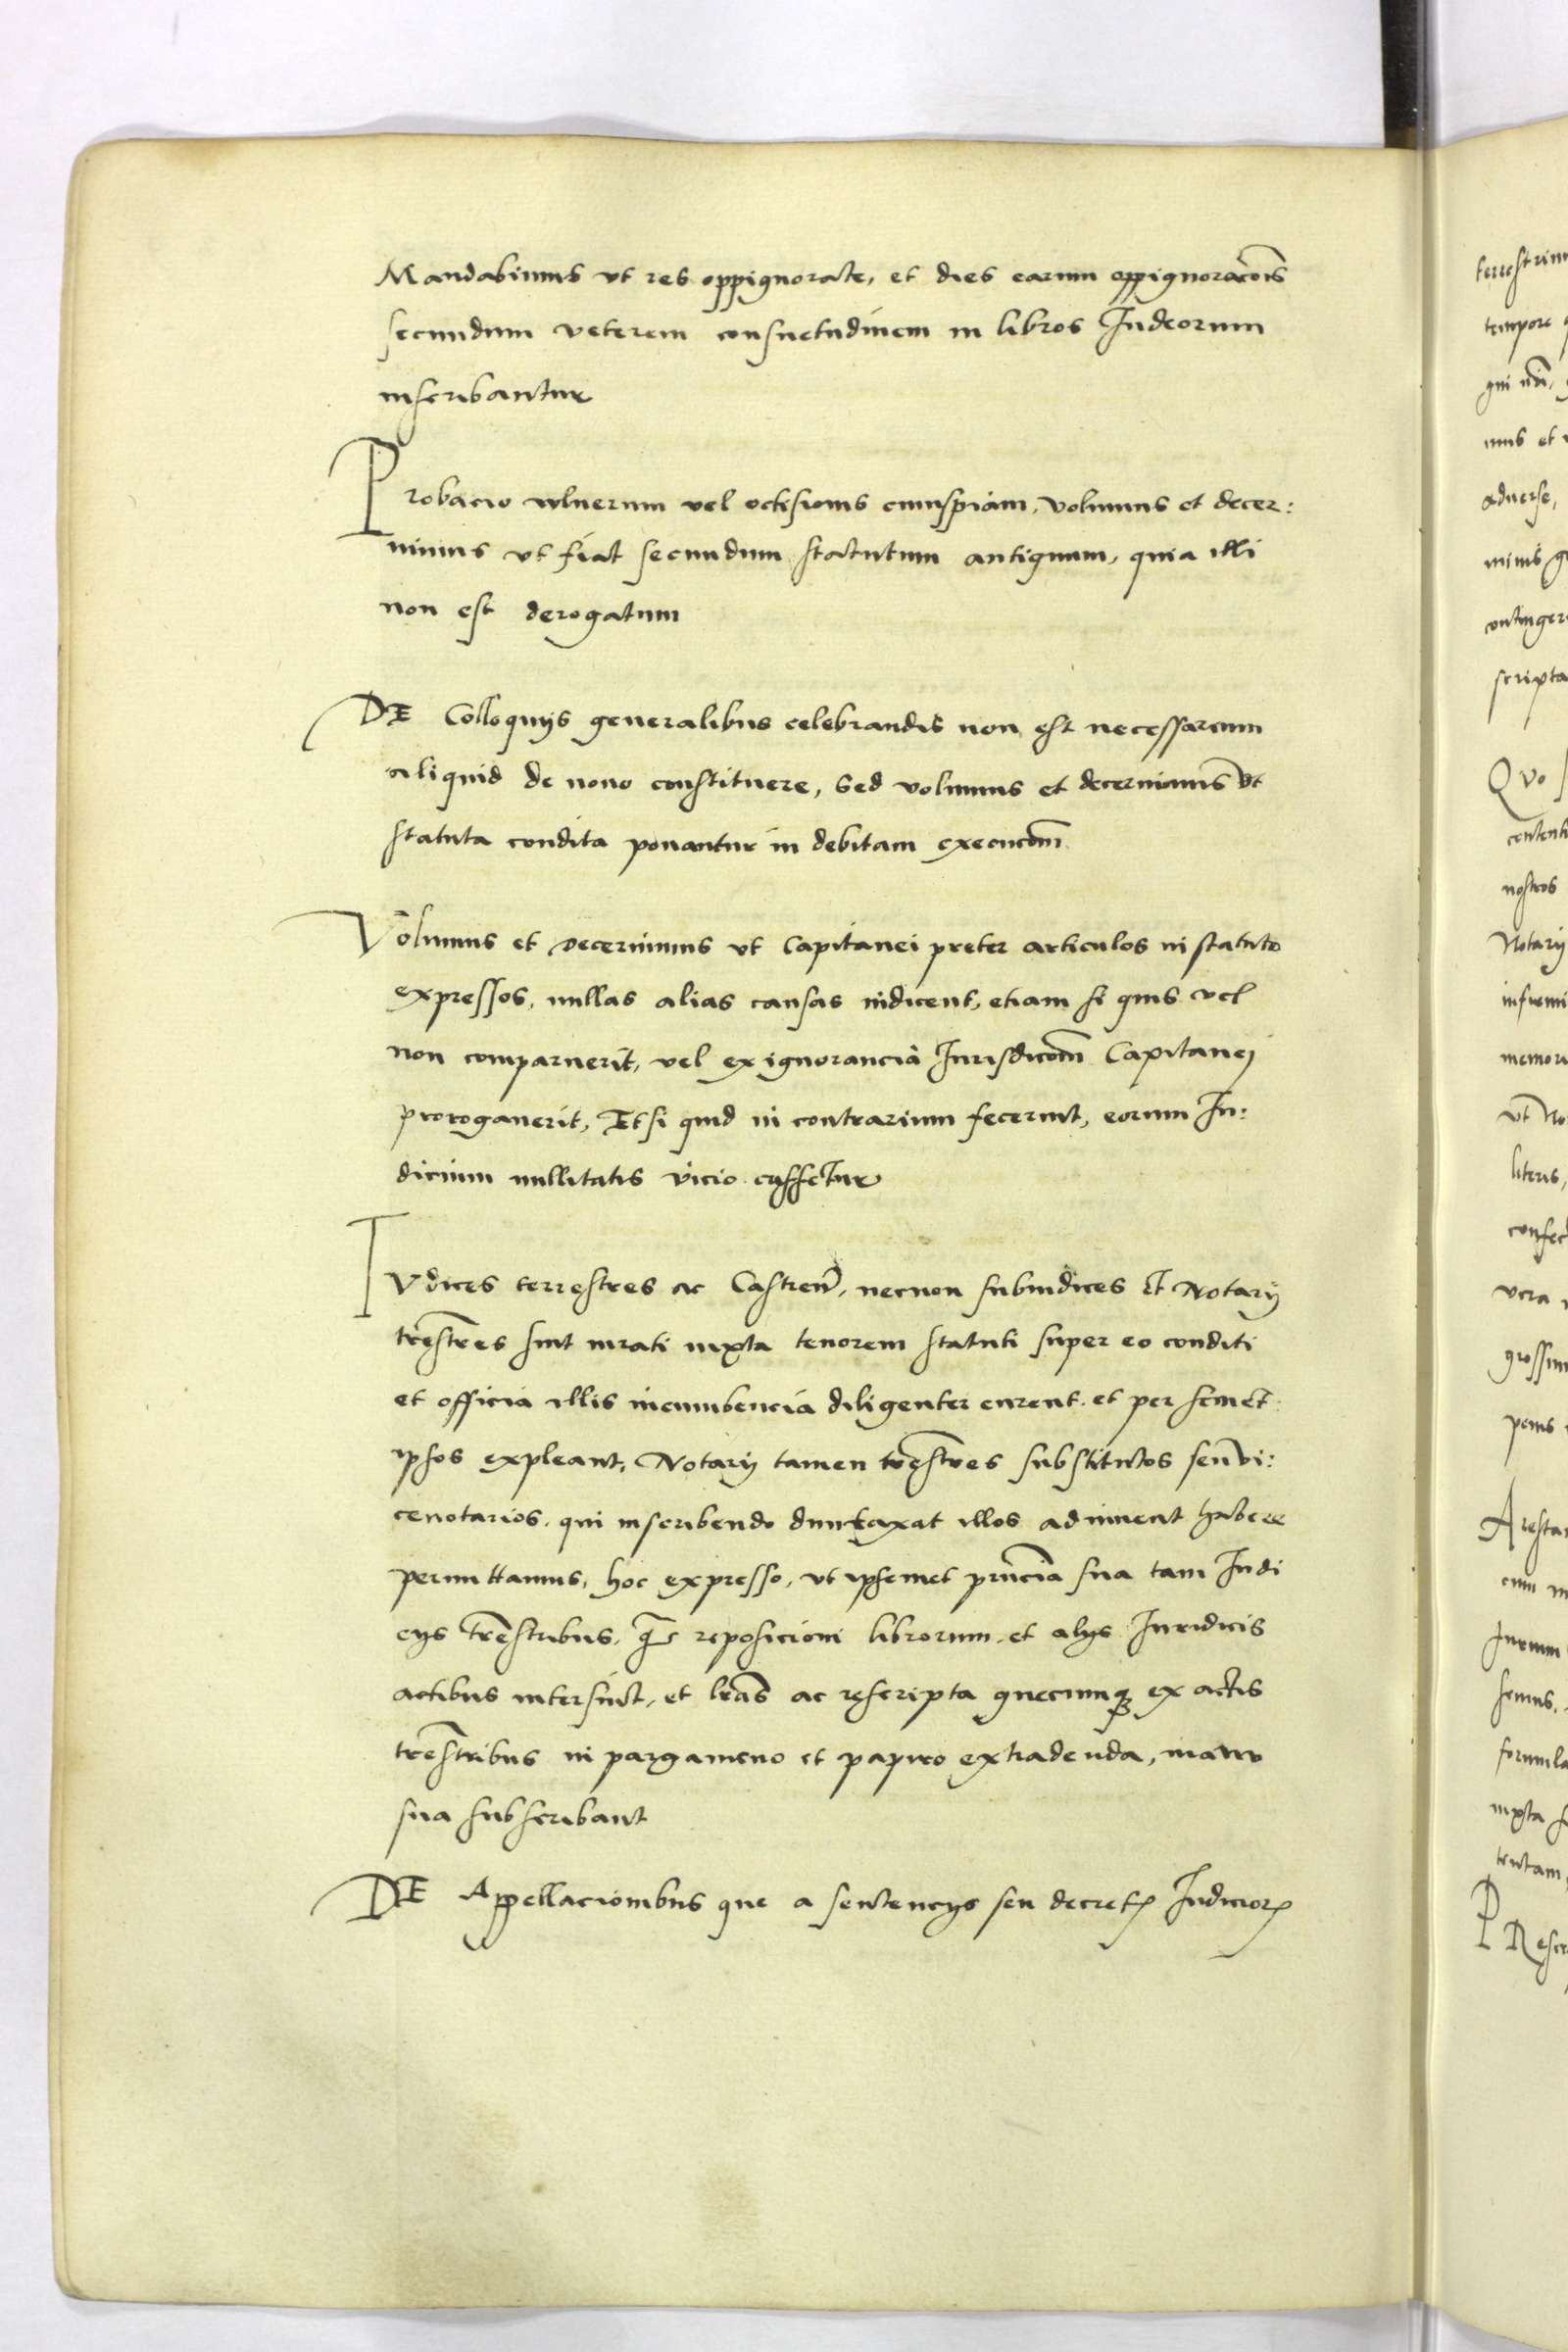 Mandabimus vt res oppignorate, et dies earum oppignorac̃ois
secundum veterem consuetudinem in libros Iudeorum
inscribantur
Probacio wlnerum vel occisionis cuiuspiam, volumus et decer:
nimus vt fiat secundum statutum antiquum, quia illi
non est derogatum
DE Colloquijs generalibus celebrandis non est necessarium
aliquid de nouo constituere, Sed volumus et decernimus vt
statuta condita ponantur in debitam execuc̃om
Volumus et decernimus vt Capitanei preter articulos in statuto
expressos, nullas alias causas iudicent, etiam si quis vel
non comparuerit, vel ex ignorancia Iurisdic̃om Capitanej
prorogauerit, Et si quid in contrarium fecerint, eorum Iu:
dicium nullitatis vicio cassetur
IVdices terrestres ac Castren̄, necnon subiudices et Notarij
trẽstres sint iurati iuxta tenorem statuti super eo conditi
et officia illis incumbencia diligenter curent et per semet
ipsos expleant, Notarij tamen trẽstres substitutos seu vi:
cenotarios qui inscribendo duntaxat illos adiuuent habere
permittamus, hoc expresso, vt ipsemet pñcia sua tam Iudi
cijs trẽstribus, q̃ reposicioni librorum et alijs Iuridicis
actibus intersint, et lr̃as ac rescripta quecumqꝫ ex actis
trẽstribus in pargameno et papiro extradenda, manu
sua subscribant
DE Appellacionibus que a sentencijs seu decretꝭ Iudicioꝝ
terrestrium
tempore
qui
mus et
aduerse,
nimus
contingere
scripta
Quo
contenti
nostros
Notarij
memori
vt No
literis,
confec
vera
grossum
penis
Aresta
cum
Iurium
semus.
formula
iuxta
tentam
PRescr